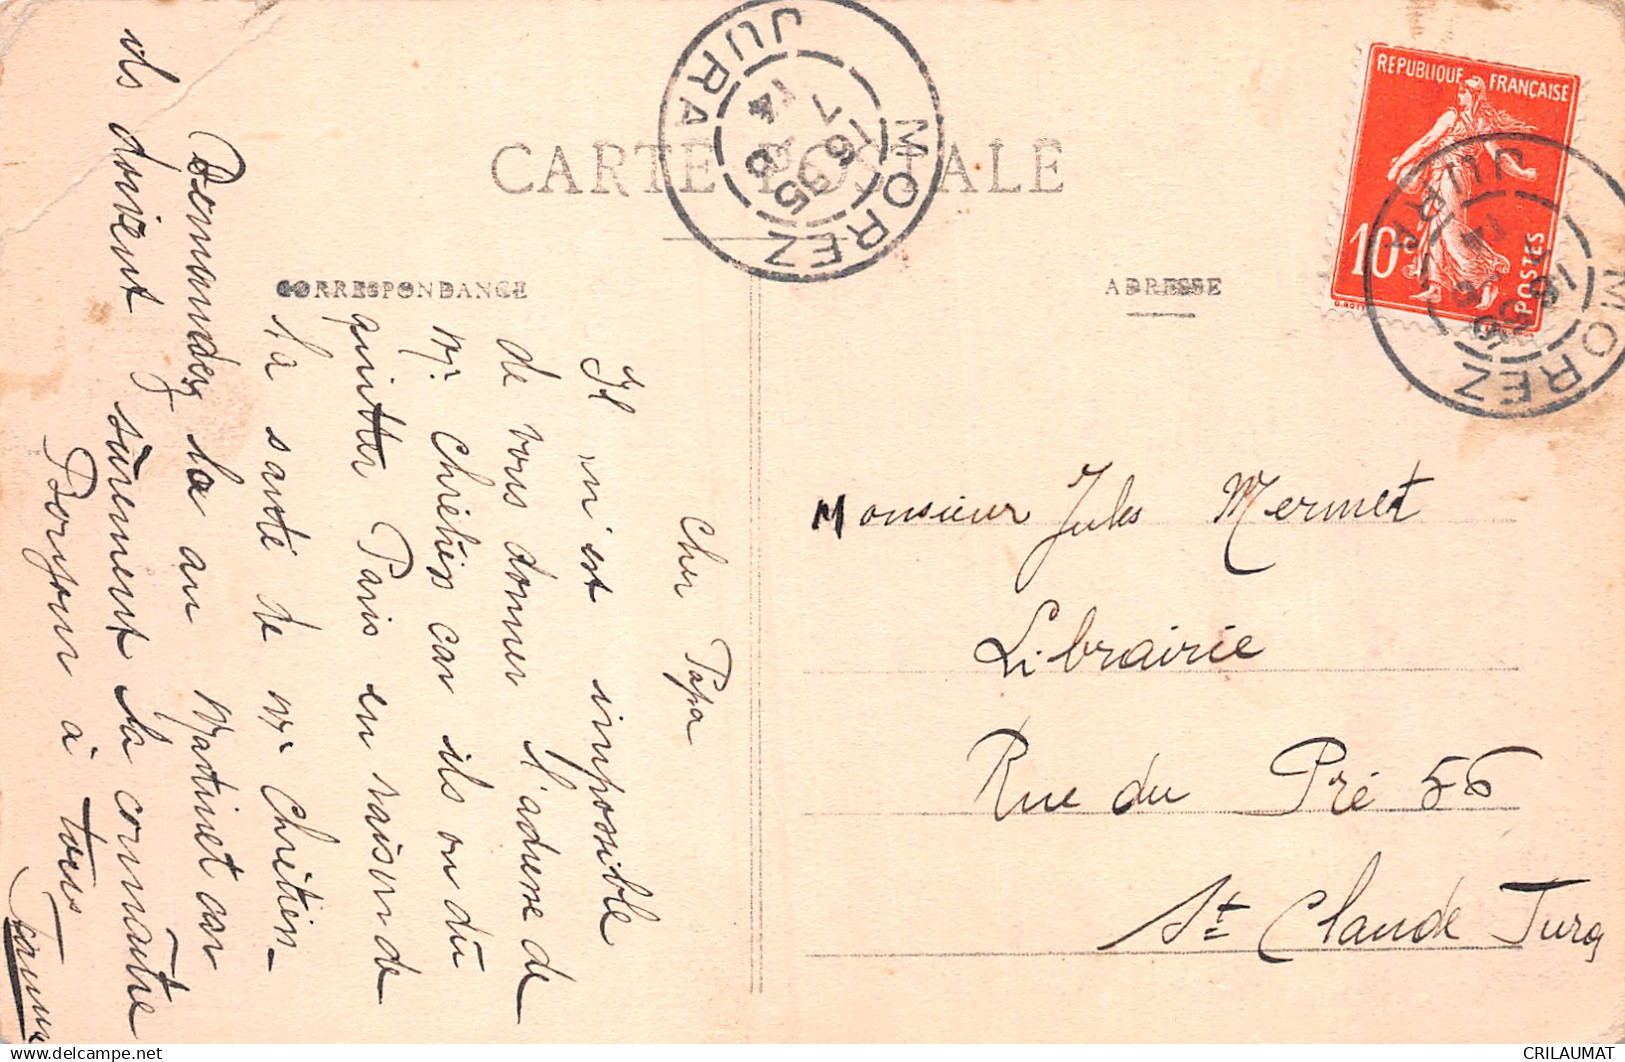 CARTE POSTALE
CORRESPONDANCE
Cher Papa
Il m'est impossible
de vous donner l'adresse de
Mr Chrétien car ils on dû
quitter Paris en raison de
la santé de Mr Chrétien_
Demandez la au Martinet car
ils doivent sûrement la connaître
Bonjour à tous
ADRESSE
Monsieur Jules Mermet
Librairie
Rue du Pré 56
St Claude Jura
REPUBLIQUE FRANÇAISE
10c
POSTES
MOREZ
JURA
16 35
MOREZ
JURA
CRILAUMAT